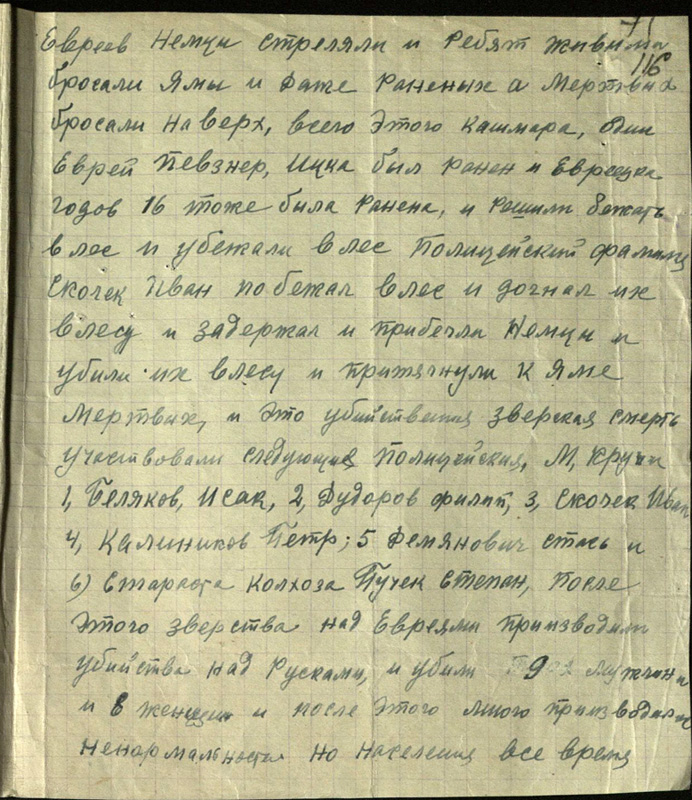 116
Евреев Немцы стреляли и Ребят живыми
бросали Ямы и Даже Раненых а Мертвых
бросали на верх, всего Этого Кашмара, один
Еврей Певзнер, Ицка был ранен и Еврейка
годов 16 тоже была Ранена, и Решили бежать
в лес и убежали в лес Полицейский фамилия
Скочек Иван побежал в лес и догнал их
в лесу и задержал и прибегли Немцы и
убили их в лесу и притягнули к Яме
Мертвых, и Это зверская смерть
участвовали следующие Полицейския, М,
1, Беляков, Исак, 2, Дударов филип, 3, Скочек Иван
4, Калиников Петр; 5 Демянович стась и
6) Староста Колхоза Пучек Степан, После
Этого зверства над Евреями производили
убийства над Русками, и убили 9 мужчин
и 8 женщин и после Этого много производили
ненормальности но населения все время